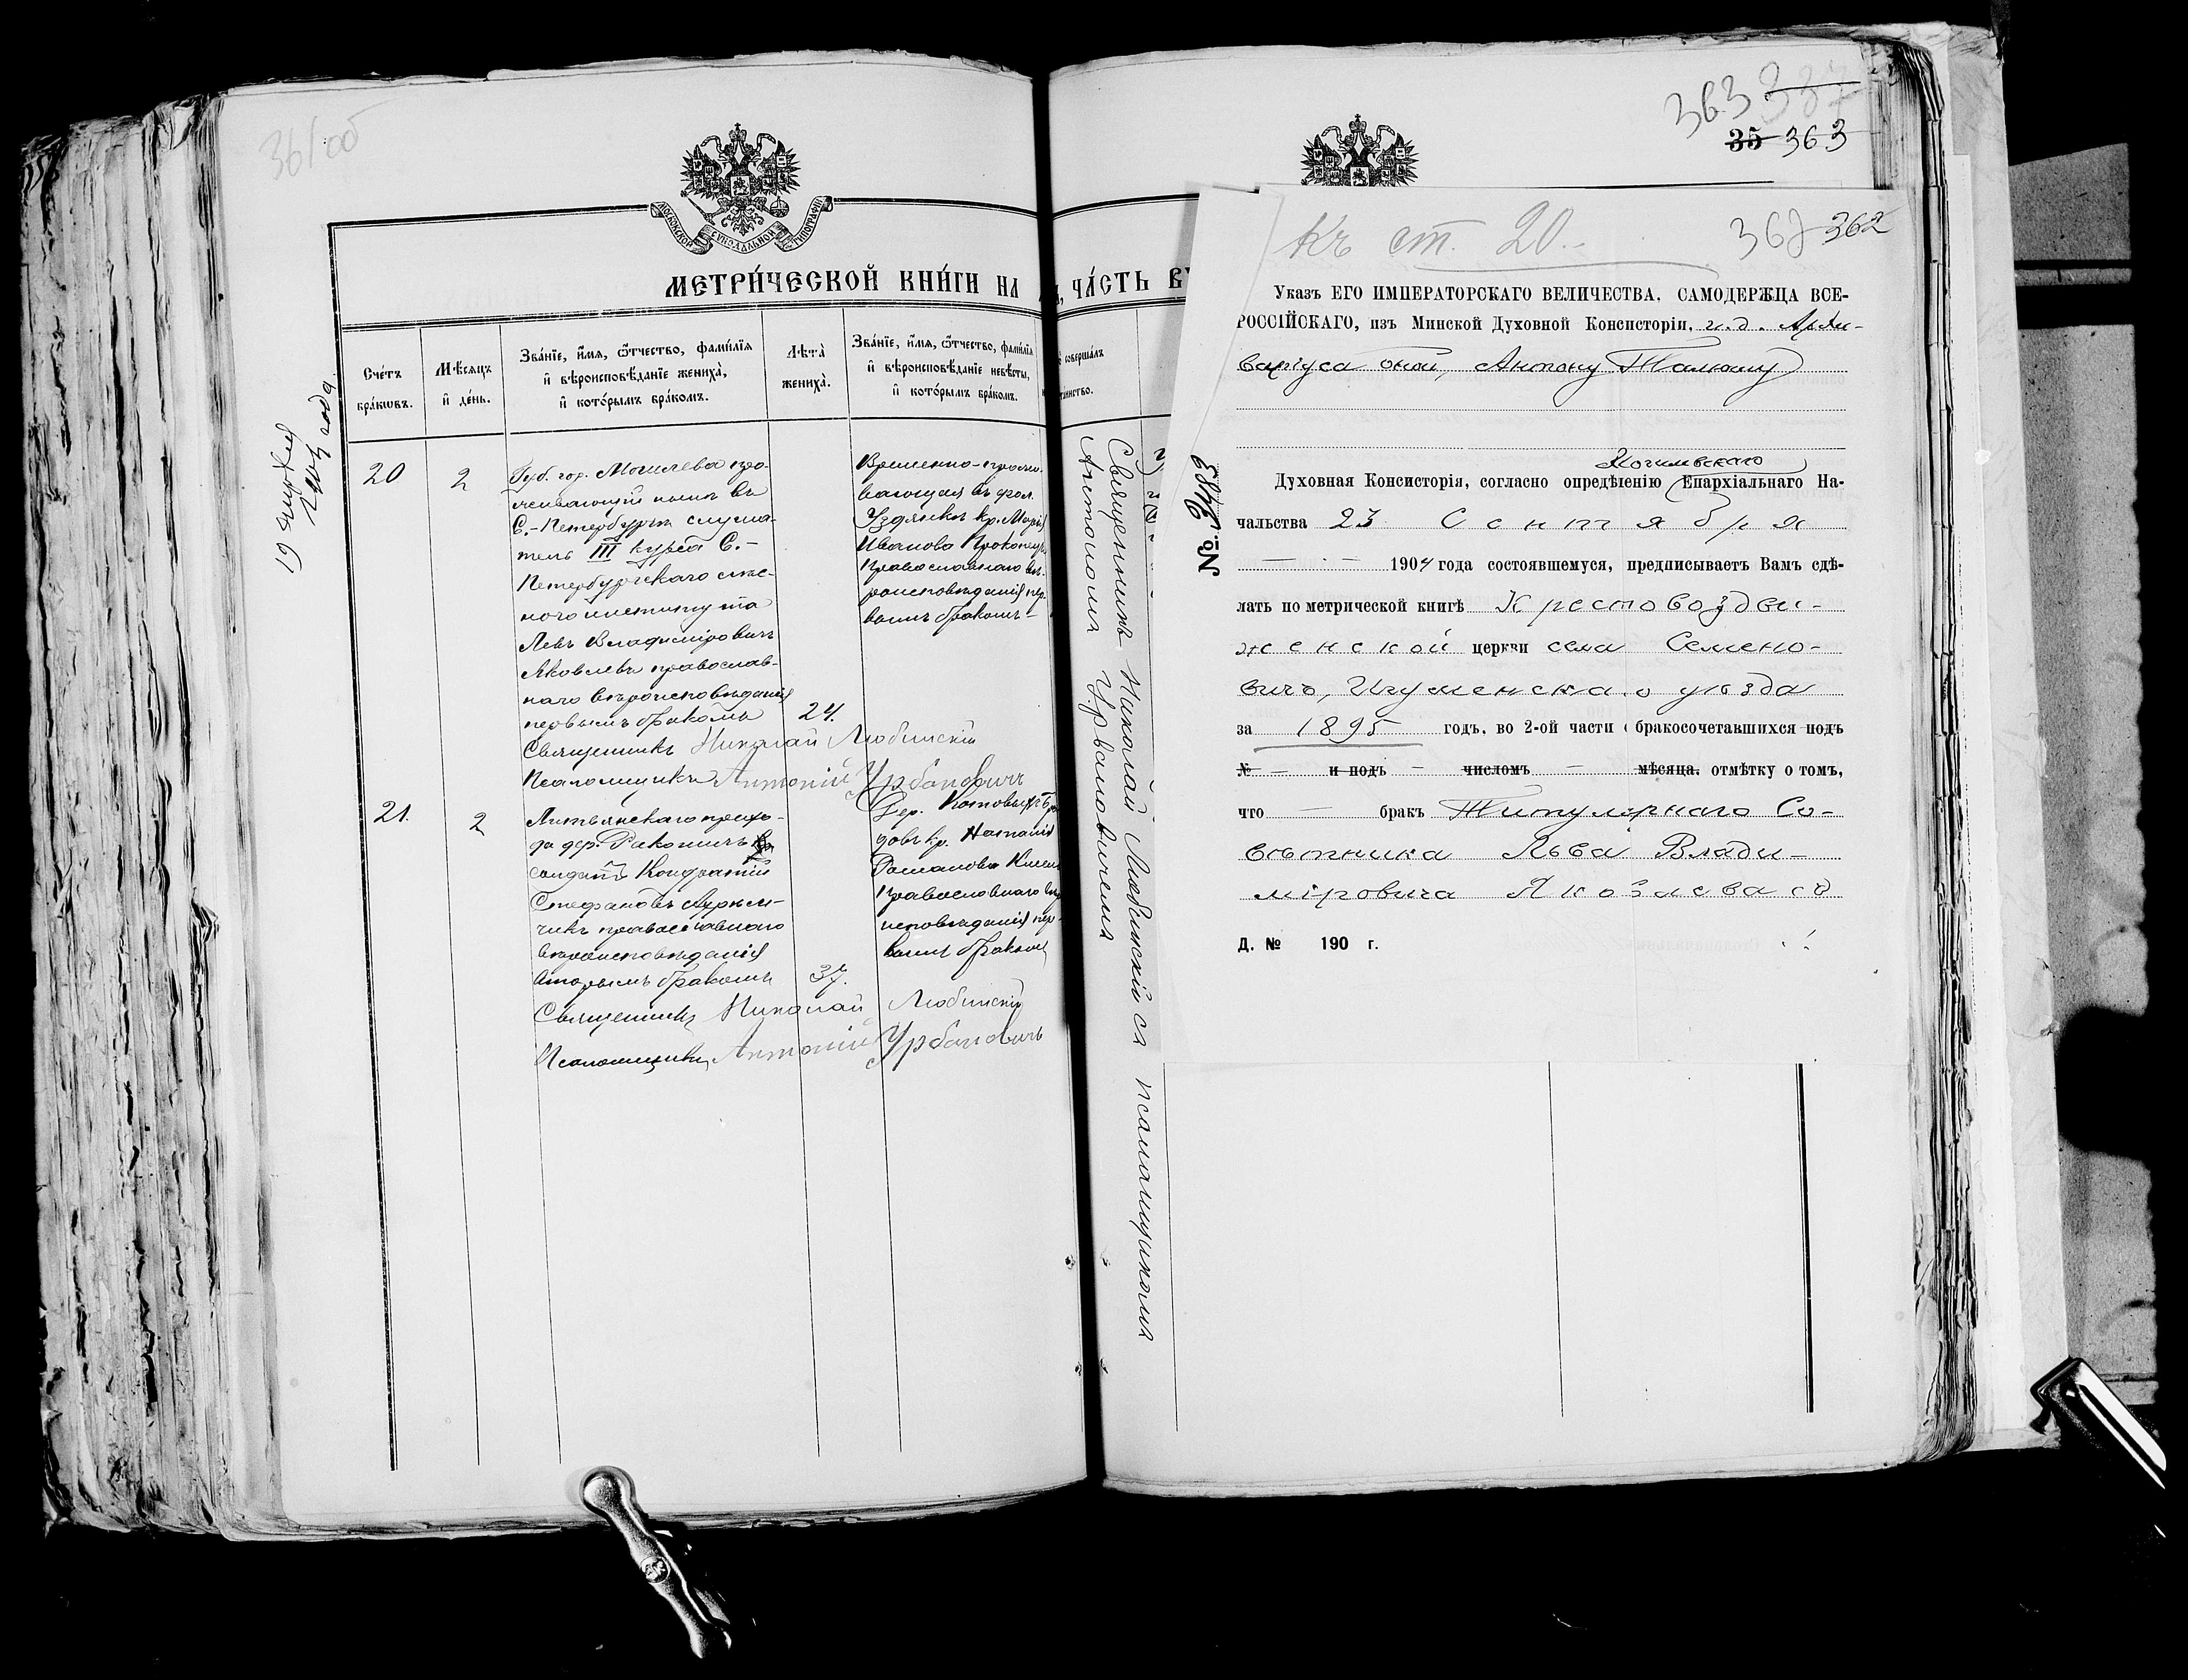 361 об
МОСКОВСКОЙ СѴНОДАЛЬНОЙ ТИПОГРАФІИ
МЕТРИ́ЧЕСКОЙ КНИ́ГИ НА
Сче́тъ бра́кѡвъ.
Мѣ́сяцъ и҆ де́нь.
Зва́нїе, и҆́мя, ѻ҆́тчество, фами́лїя и҆ вѣроисповѣ́данїе жениха̀, и҆ кото́рымъ бра́комъ.
Лѣта̀ жениха̀.
Зва́нїе, и҆́мя, ѻ҆́тчество, фами́лїя и҆ вѣроисповѣ́данїе невѣ́сты, и҆ кото́рымъ бра́комъ.
19
года
20
2
Губ. гор. Могилева про-
живающій нынѣ въ
С.-Петербургѣ слуша-
тель III курса С.-
Петербургскаго лѣс-
ного института
Левъ Владиміровичъ
Яковлевъ православ-
наго вѣроисповѣданія
первымъ бракомъ
24.
Временно-прожи-
вающая въ фол.
Уздянкѣ кр. Марія
Иванова
Православнаго вѣ-
роисповѣданія пер-
вымъ бракомъ
Священникъ Николай Любинскій
Псаломщикъ Антоній Урбановичъ
21.
2
прихо-
да дер.
солдатъ Кондратій
Стефановъ
чикъ православнаго
вѣроисповѣданія
вторымъ бракомъ
37.
Дер.
кр. Наталія
Романова
Православнаго
исповѣданія пер-
вымъ бракомъ
Священникъ Николай Любинскій
Псаломщикъ Антоній Урбановичъ
ЧА́СТЬ
совершалъ
таинство.
Священникъ Николай Любинскій съ псаломщикомъ
Антономъ Урбановичемъ
363 387
35 363
Къ ст. 20.
367 362
Указъ ЕГО ИМПЕРАТОРСКАГО ВЕЛИЧЕСТВА, САМОДЕРЖЦА ВСЕ-
РОССІЙСКАГО, изъ Минской Духовной Консисторіи, и. д. Архи-
варіуса оной, Антону
№ 3483
Могилевскаго
Духовная Консисторія, согласно опредѣленію Епархіальнаго На-
чальства 23 Сентября
1904 года состоявшемуся, предписываетъ Вамъ сдѣ-
лать по метрической книгѣ Крестовоздви-
женской церкви села Семено-
вичъ, Игуменскаго уѣзда
за 1895 годъ, во 2-ой части бракосочетавшихся подъ
№ — и подъ — числомъ — мѣсяца, отмѣтку о томъ,
что — бракъ Титулярнаго Со-
вѣтника Льва Влади-
міровича Яковлева съ
Д. № 190 г.